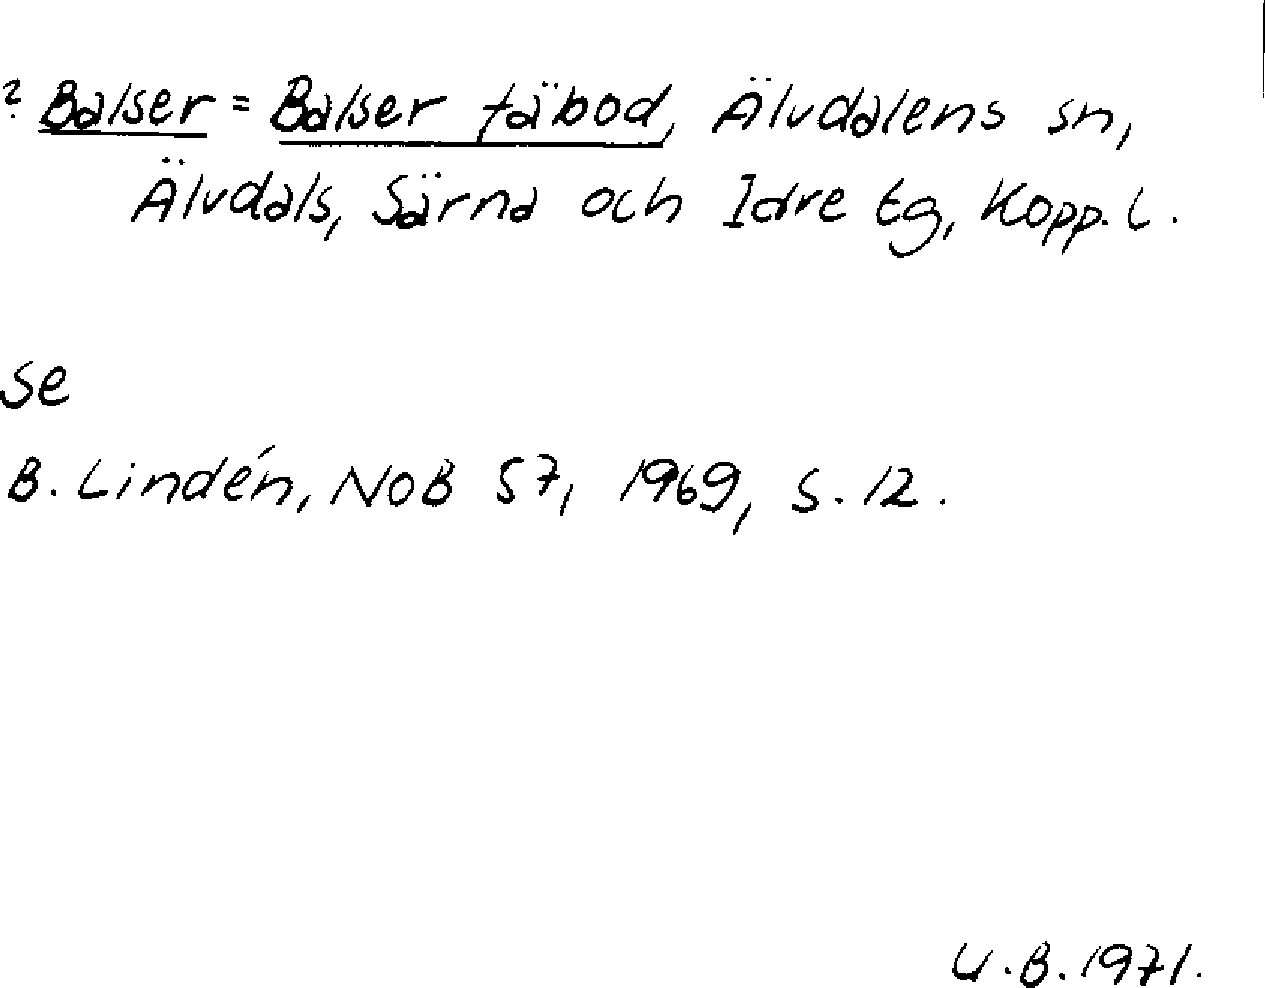 ? Balser = Balser fäbod, Älvdalens sn,
Älvdals, Särna och Idre tg, Kopp. l.
se
B. Lindén, NoB 57, 1969, s. 12.
U.B. 1971.